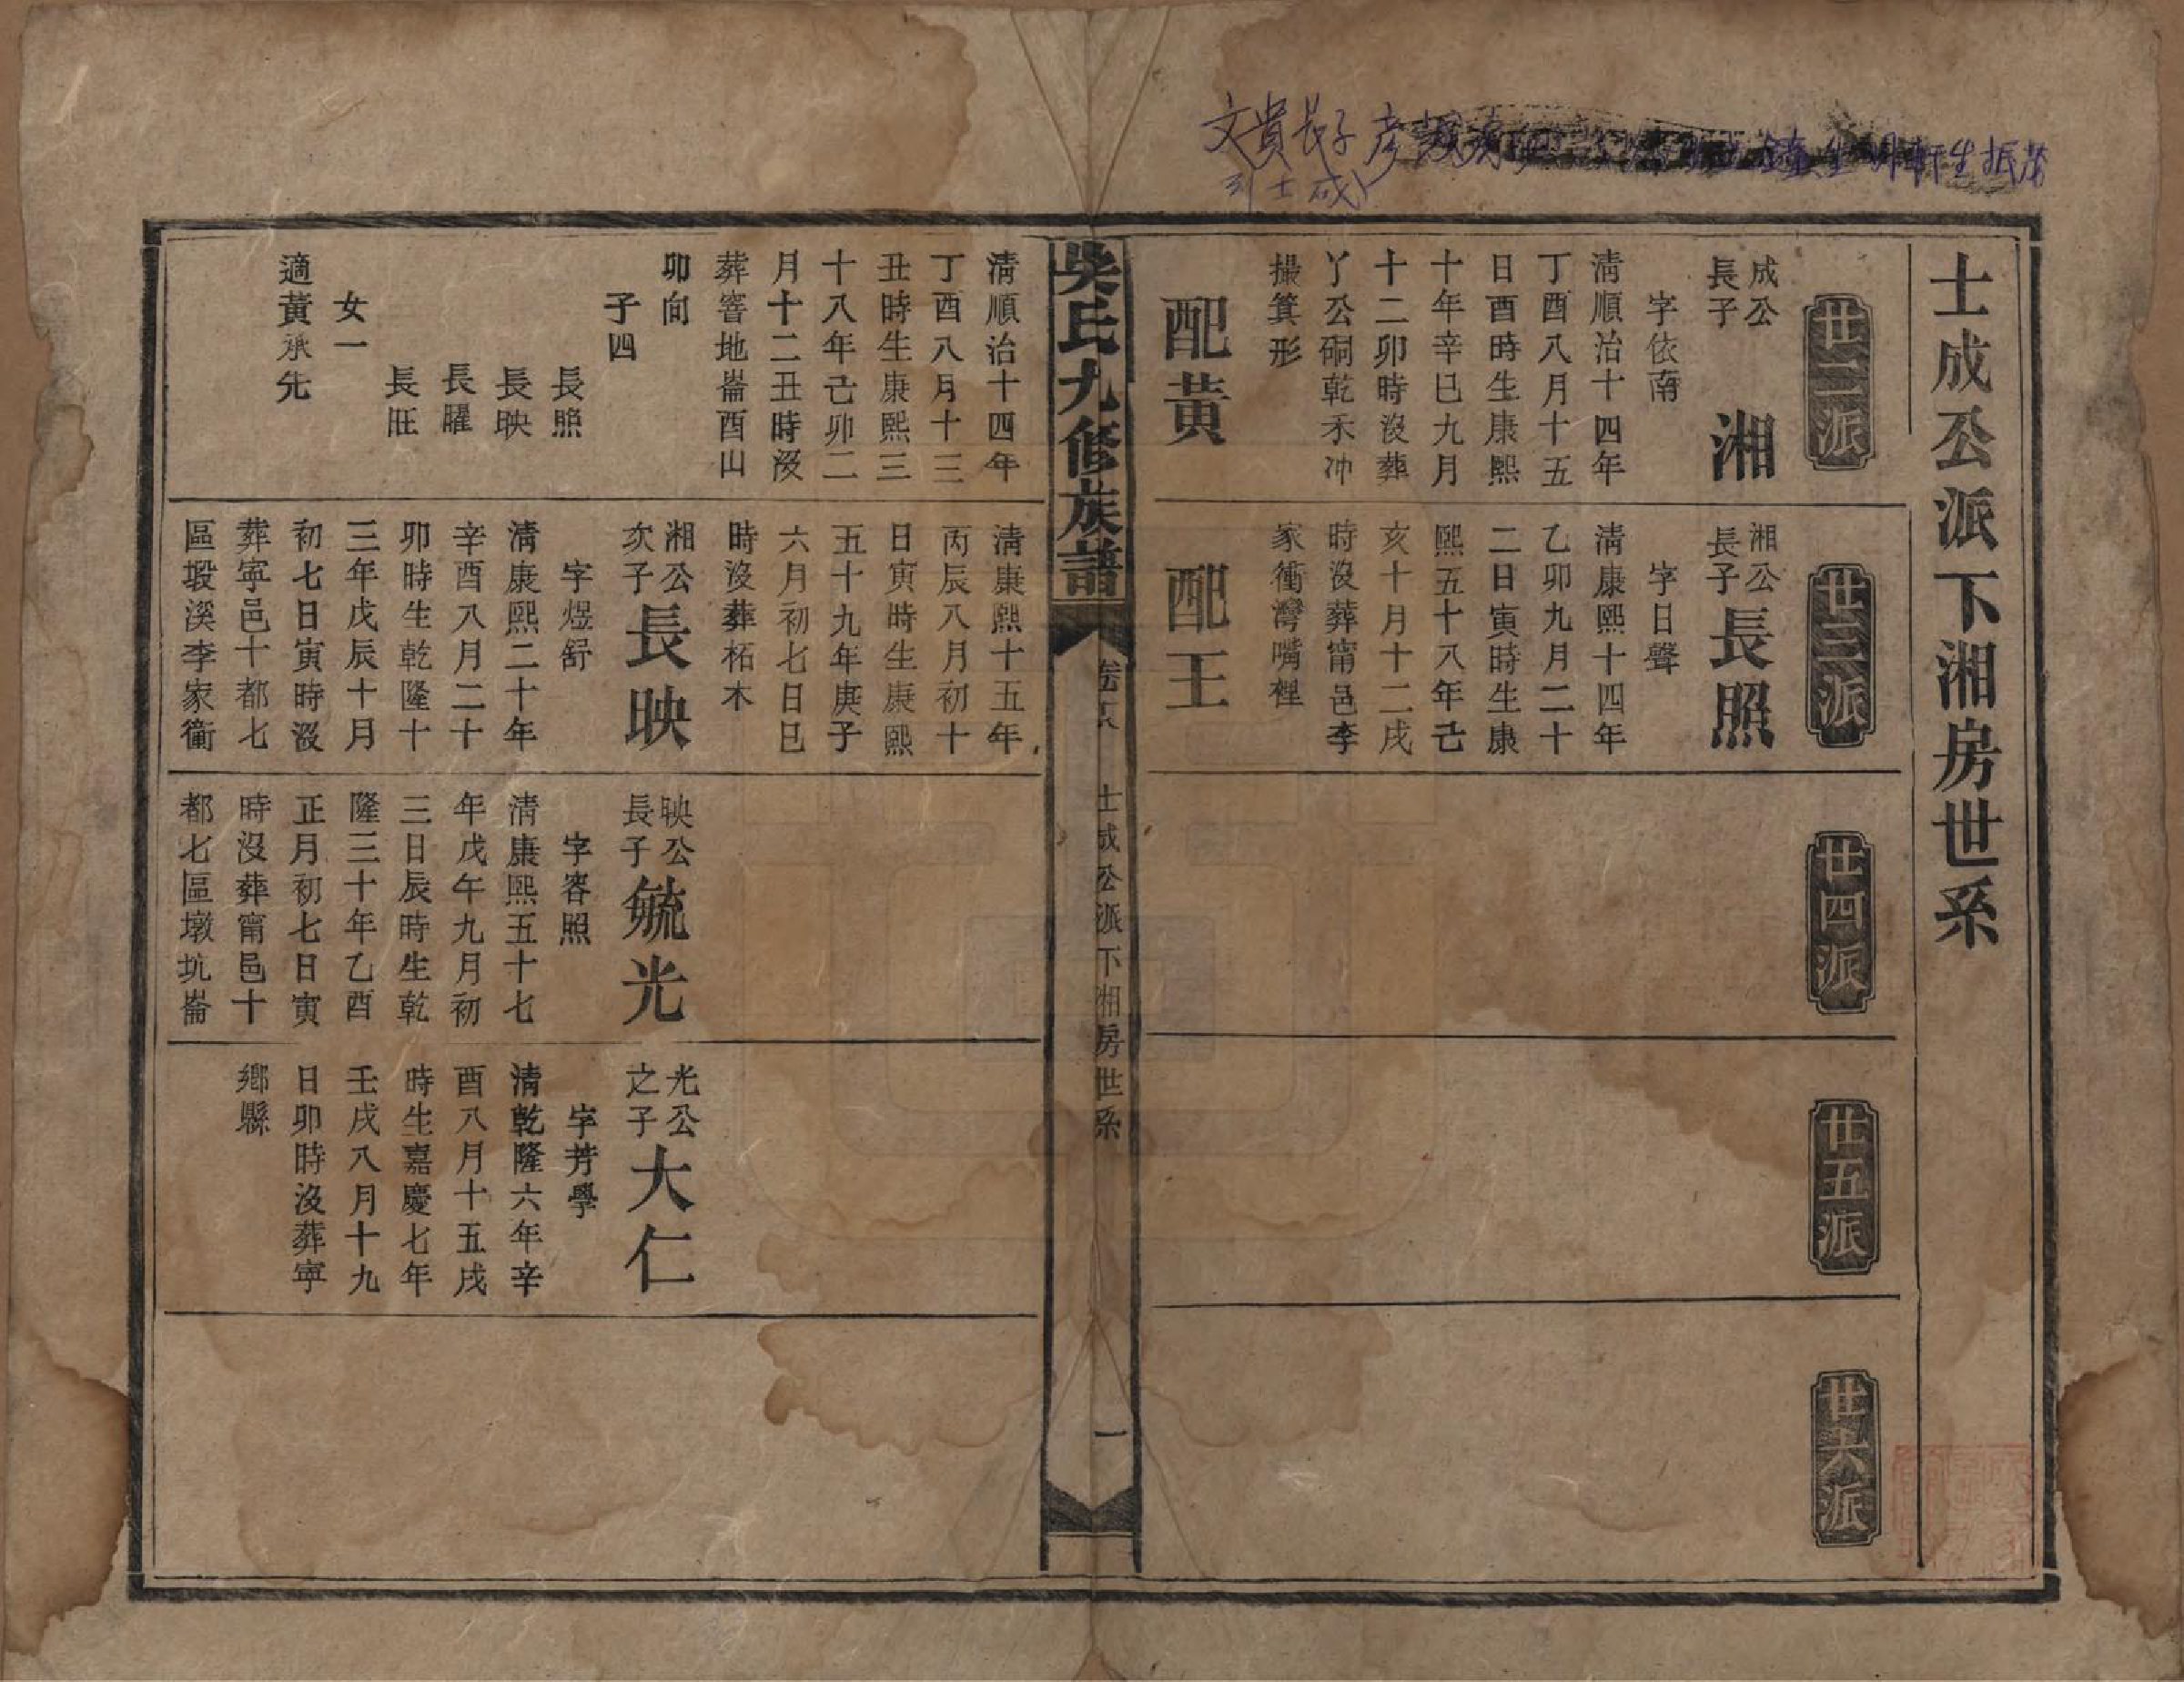 文貴長子彥
到士成
士成公派下湘房世系
廿二派
廿三派
廿四派
廿五派
廿六派
成公
長子
湘
字依南
清順治十四年
丁酉八月十五
日酉時生康熙
十年辛巳九月
十二卯時沒葬
丫公硐乾禾冲
撮箕形
配黃
湘公
長子
長照
字日聲
清康熙十四年
乙卯九月二十
二日寅時生康
熙五十八年己
亥十月十二戌
時沒葬甯邑李
家衝灣嘴裡
配王
吳氏九修族譜
士成公派下湘房世系
一
清順治十四年
丁酉八月十三
丑時生康熙三
十八年己卯二
月十二丑時沒
葬窖地崙酉山
卯向
子四
長照
長映
長曜
長旺
女一
適黃承先
清康熙十五年
丙辰八月初十
日寅時生康熙
五十九年庚子
六月初七日巳
時沒葬柘木
湘公
次子
長映
字煜舒
清康熙二十年
辛酉八月二十
卯時生乾隆十
三年戊辰十月
初七日寅時沒
葬寧邑十都七
區塅溪李家衝
映公
長子
毓光
字容照
清康熙五十七
年戊午九月初
三日辰時生乾
隆三十年乙酉
正月初七日寅
時沒葬甯邑十
都七區墩坑崙
光公
之子
大仁
字芳學
清乾隆六年辛
酉八月十五戌
時生嘉慶七年
壬戌八月十九
日卯時沒葬寧
鄉縣